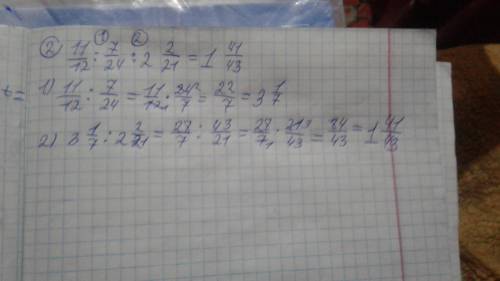 ① ②
2) 11/12 : 7/24 : 2 2/21 = 1 41/43
1) 11/12 : 7/24 = 11/12₁ · 24²/7 = 22/7 = 3 1/7
2) 3 1/7 : 2 2/21 = 28/7 : 43/21 = 28/7₁ · 21³/43 = 84/43 = 1 41/43